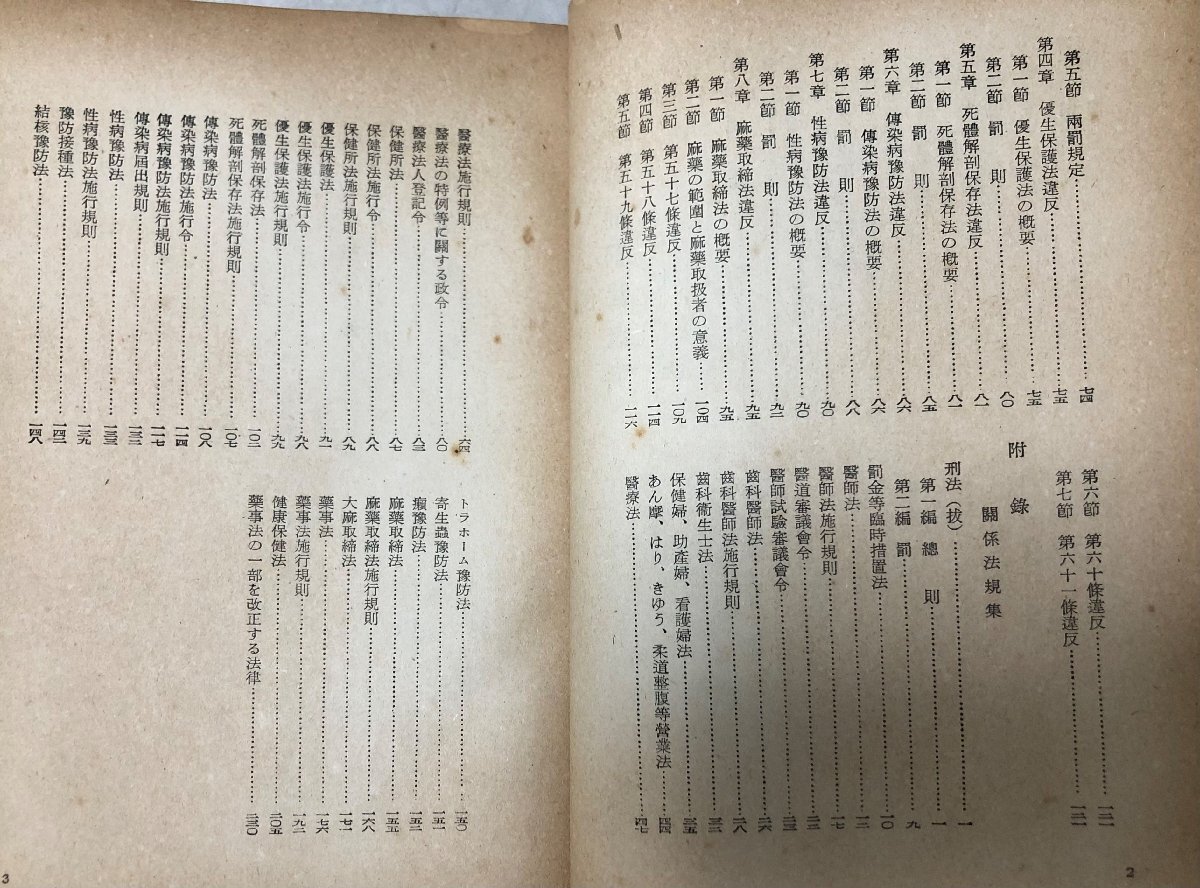 第五節 兩罰規定……七四
第四章 優生保護法違反……七五
第一節 優生保護法の概要……七五
第二節 罰 則……八〇
第五章 死體解剖保存法違反……八一
第一節 死體解剖保存法の概要……八一
第二節 罰 則……八五
第六章 傳染病豫防法違反……八六
第一節 傳染病豫防法の概要……八六
第二節 罰 則……八八
第七章 性病豫防法違反……九〇
第一節 性病豫防法の概要……九〇
第二節 罰 則……九二
第八章 麻藥取締法違反……九五
第一節 麻藥取締法の概要……九五
第二節 麻藥の範圍と麻藥取扱者の意義……一〇四
第三節 第五十七條違反……一〇九
第四節 第五十八條違反……一一四
第五節 第五十九條違反……一一六
第六節 第六十條違反……一二一
第七節 第六十一條違反……一二一
附 錄
關係法規集
刑法(拔)……一
第一編 總 則……一
第二編 罰……九
罰金等臨時措置法……一〇
醫師法……一二
醫師法施行規則……一七
醫道審議會令……二二
醫師試驗審議會令……二三
齒科醫師法……二六
齒科醫師法施行規則……二八
齒科衞生士法……三二
保健婦、助產婦、看護婦法……三五
あん摩、はり、きゆう、柔道整腹等營業法……四四
醫療法……四七
2
醫療法施行規則……六四
醫療法の特例等に關する政令……八〇
醫療法人登記令……八三
保健所法……八七
保健所法施行令……八八
保健所法施行規則……八九
優生保護法……九一
優生保護法施行令……九八
優生保護法施行規則……九九
死體解剖保存法……一〇二
死體解剖保存法施行規則……一〇七
傳染病豫防法……一〇八
傳染病豫防法施行令……一一四
傳染病豫防法施行規則……一一七
傳染病屆出規則……一三二
性病豫防法……一三三
性病豫防法施行規則……一三九
豫防接種法……一四二
結核豫防法……一四八
トラホーム豫防法……一五〇
寄生蟲豫防法……一五一
癩豫防法……一五二
麻藥取締法……一五五
麻藥取締法施行規則……一六八
大麻取締法……一七一
藥事法……一七六
藥事法施行規則……一九二
健康保健法……二〇五
藥事法の一部を改正する法律……二三〇
3